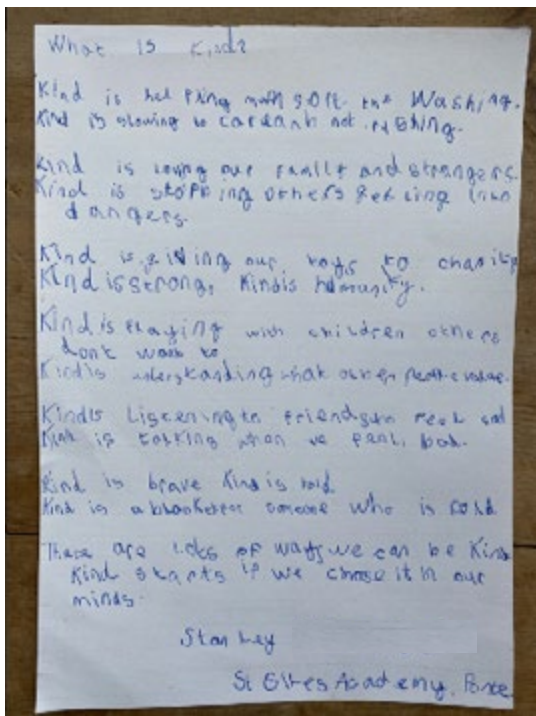 What is Kind?
Kind is helping mum sort the Washing.
Kind is slowing to and not rushing.
Kind is loving our family and strangers.
Kind is stopping others getting into
dangers.
Kind is giving our toys to charity
Kind is strong, Kind is humanity.
Kind is Playing with children others
dont want to
Kind is understanding what other people value.
Kind is Listening to friends who feel sad
Kind is talking when we feel bad.
Kind is brave Kind is
Kind is a blanket someone who is cold
There are lots of ways we can be Kind
Kind starts if we chose it in our
minds.
Stanley
St Giles Academy,